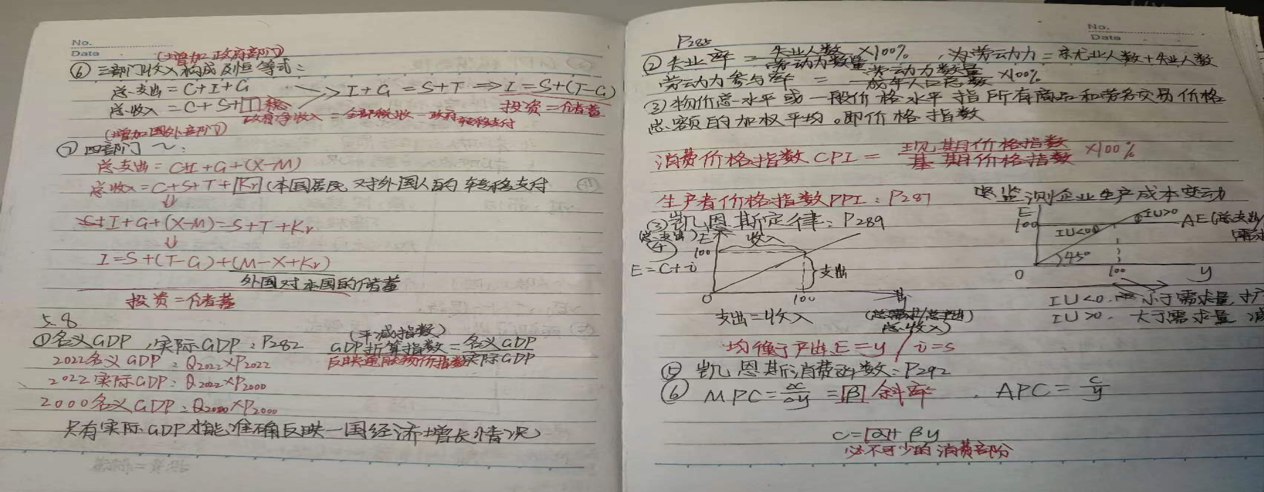 No.
Date
(增加政府部门)
⑥ 三部门收入构成及恒等式:
总支出 = C+I+G
总收入 = C+S+T 税
I+G = S+T ⇒ I = S+(T-G)
投资 = 储蓄
政府净收入 = 全部税收 - 政府转移支付
(增加国外部门)
⑦ 四部门 ~:
总支出 = C+I+G+(X-M)
总收入 = C+S+T+Kr (本国居民对外国人的转移支付
⇓
C+I+G+(X-M)=S+T+Kr
⇓
I=S+(T-G)+(M-X+Kr)
外国对本国的储蓄
投资 = 储蓄
5.8
① 名义GDP, 实际GDP: P282
(平减指数)
GDP折算指数 = 名义GDP
实际GDP
2022名义GDP: Q2022×P2022
2022实际GDP: Q2022×P2000
2000名义GDP: Q2000×P2000
只有实际GDP才能准确反映一国经济增长情况
No.
Date
P285
② 失业率 = 失业人数
劳动力数量 ×100%
劳动力 = 就业人数+失业人数
劳动力参与率 = 劳动力数量
成年人口总数 ×100%
③ 物价总水平或一般价格水平指所有商品和劳务交易价格
总额的加权平均。即价格指数
消费价格指数CPI = 现期价格指数
基期价格指数 ×100%
生产者价格指数PPI: P287
监测企业生产成本变动
凯恩斯定律: P289
(总支出) E
收入
100
E=C+i
支出
0
100
支出=收入
总收入)
E
100
IU>0
IU<0
AE(总支出
45°
0
100
y
IU<0. 小于需求量, 扩
IU>0. 大于需求量, 减
均衡产出 E=y / i=s
⑤ 凯恩斯消费函数: P292
⑥ MPC = Δc
Δy = β 斜率. APC = c
y
c=α+βy
必不可少的消费部分